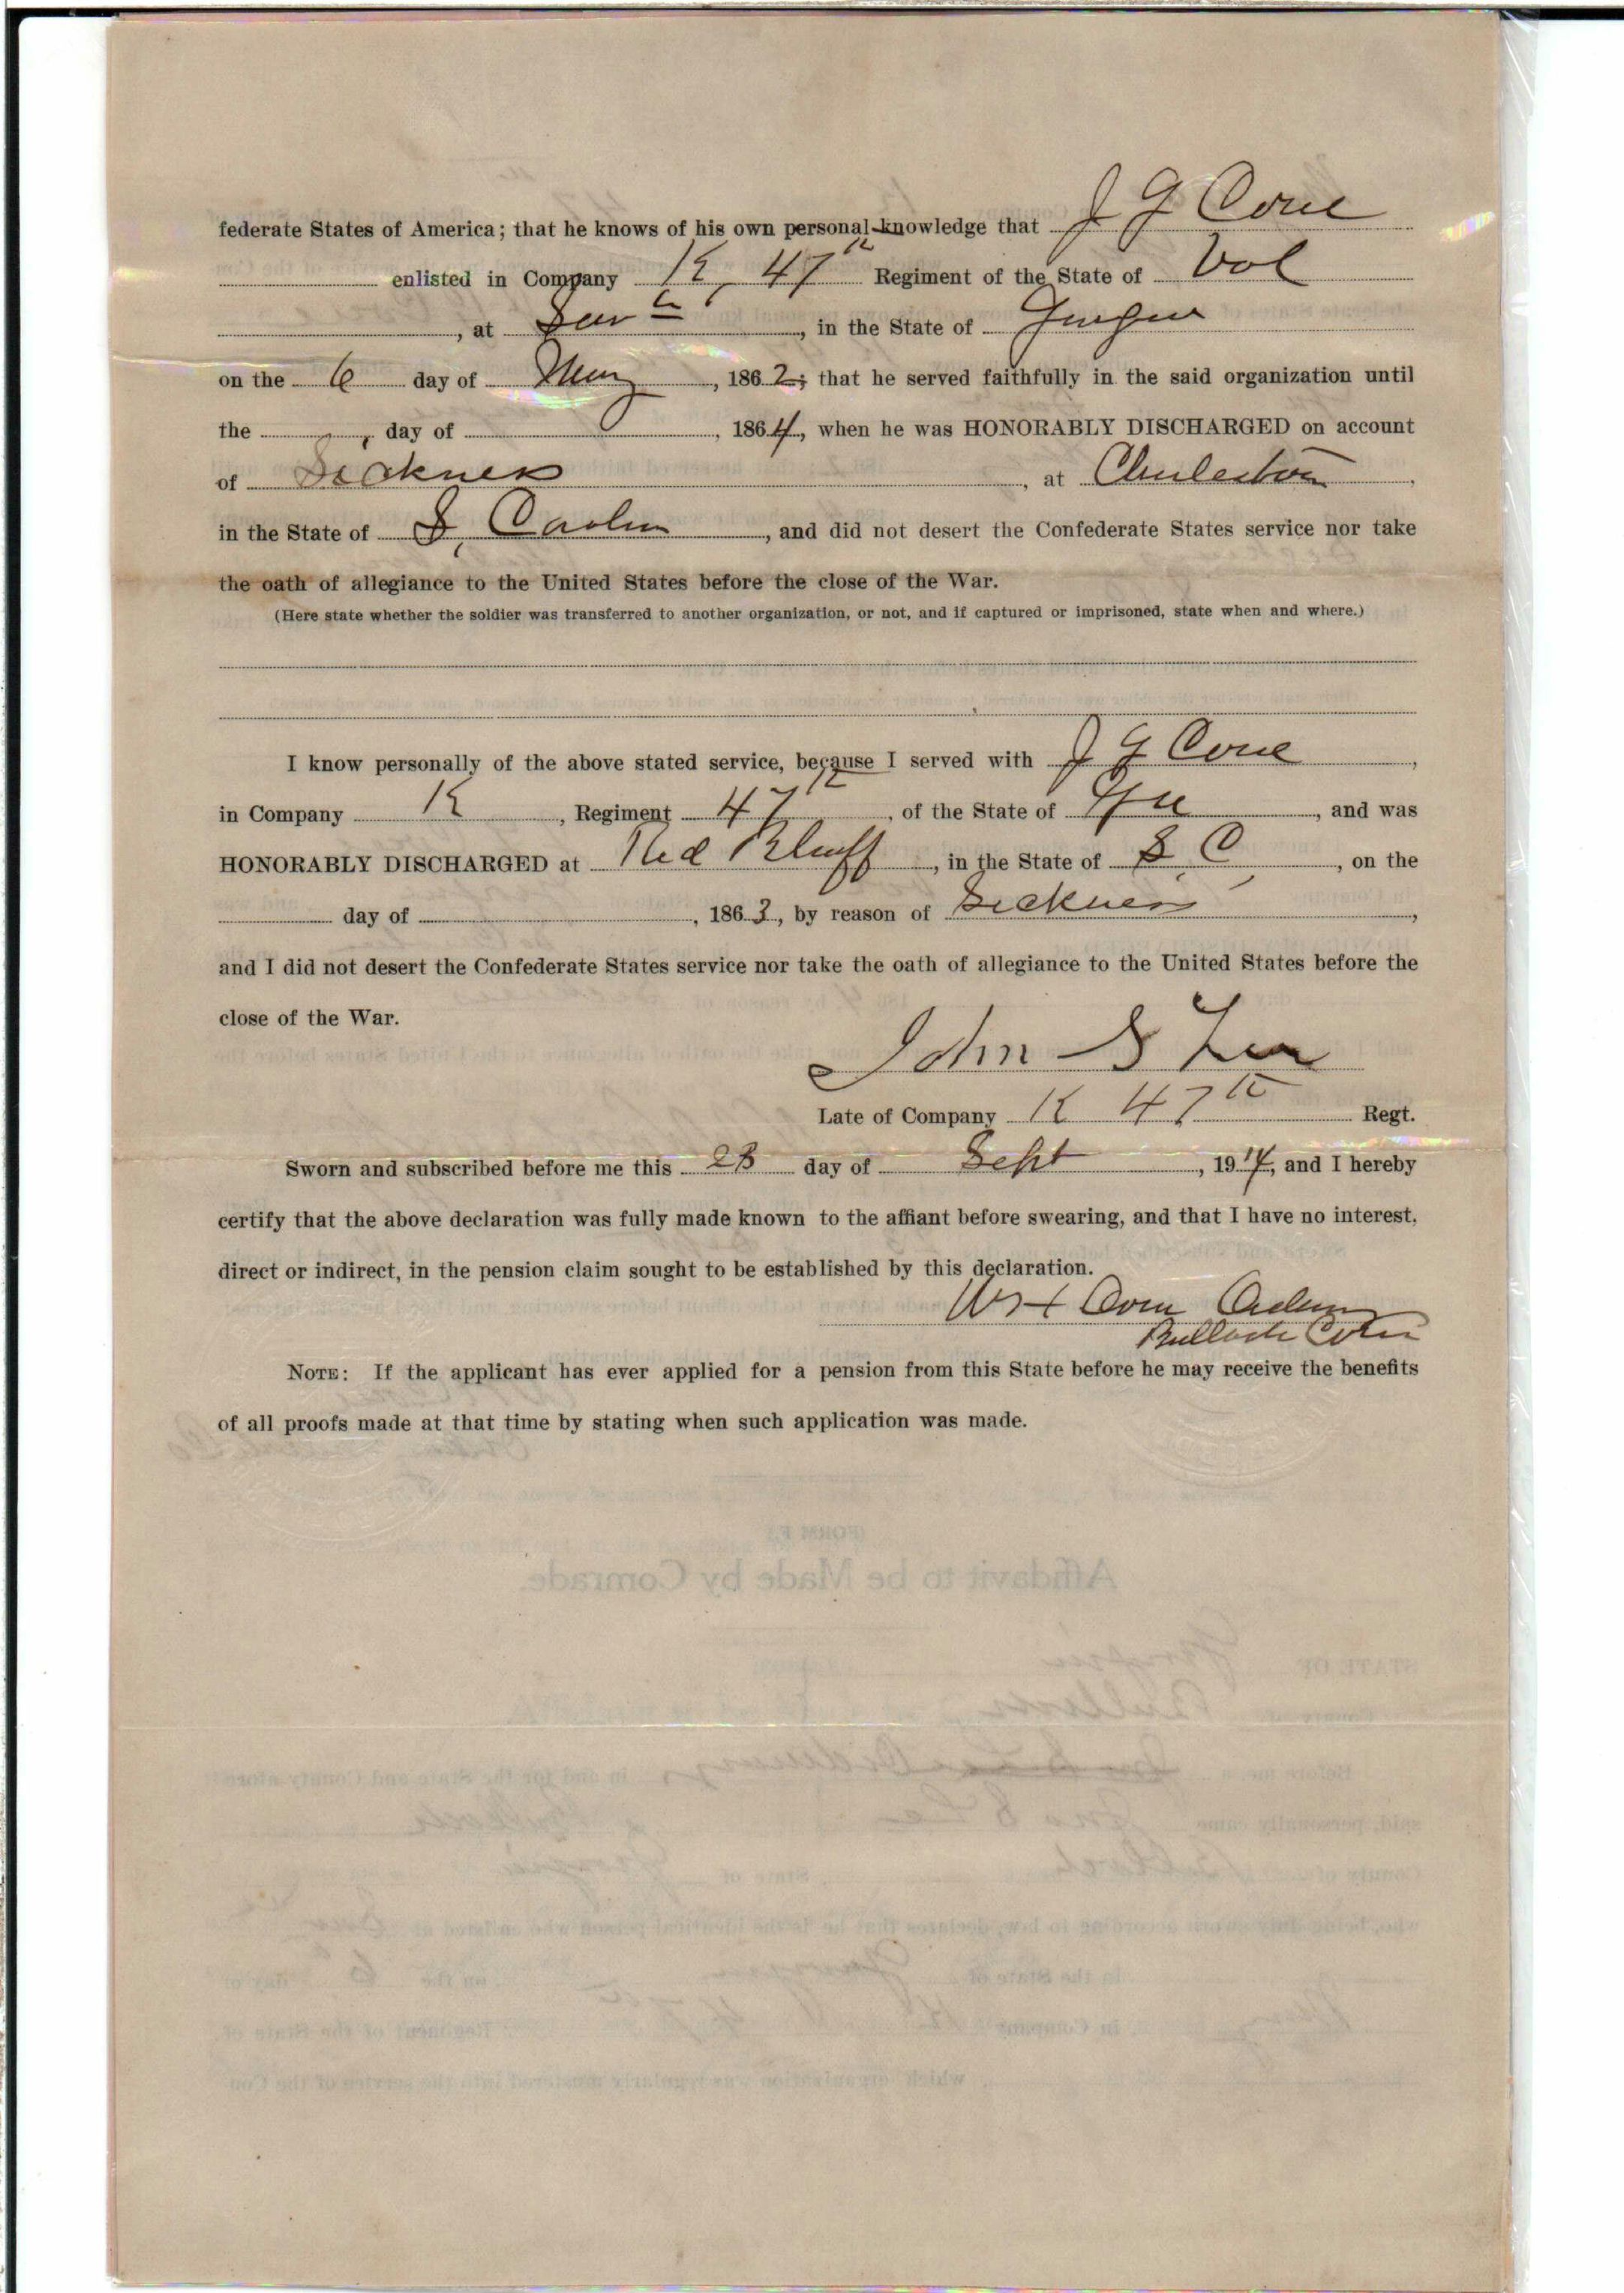 federate States of America; that he knows of his own personal knowledge that J G Cone
enlisted in Company K, 47th Regiment of the State of Vol
, at Sav, in the State of Georgia
on the 6 day of May, 1862; that he served faithfully in the said organization until
the day of , 1864, when he was HONORABLY DISCHARGED on account
of Sickness, at Charleston
in the State of S, Carolina, and did not desert the Confederate States service nor take
the oath of allegiance to the United States before the close of the War.
(Here state whether the soldier was transferred to another organization, or not, and if captured or imprisoned, state when and where.)
I know personally of the above stated service, because I served with J G Cone,
in Company K, Regiment 47th, of the State of Ga, and was
HONORABLY DISCHARGED at Red Bluff, in the State of S. C., on the
day of , 1863, by reason of Sickness,
and I did not desert the Confederate States service nor take the oath of allegiance to the United States before the
close of the War.
John S Lee
Late of Company K 47th Regt.
Sworn and subscribed before me this 23 day of Sept, 1914, and I hereby
certify that the above declaration was fully made known to the affiant before swearing, and that I have no interest,
direct or indirect, in the pension claim sought to be established by this declaration.
Ordinary
Bulloch
NOTE: If the applicant has ever applied for a pension from this State before he may receive the benefits
of all proofs made at that time by stating when such application was made.
Affidavit to be Made by Comrade.